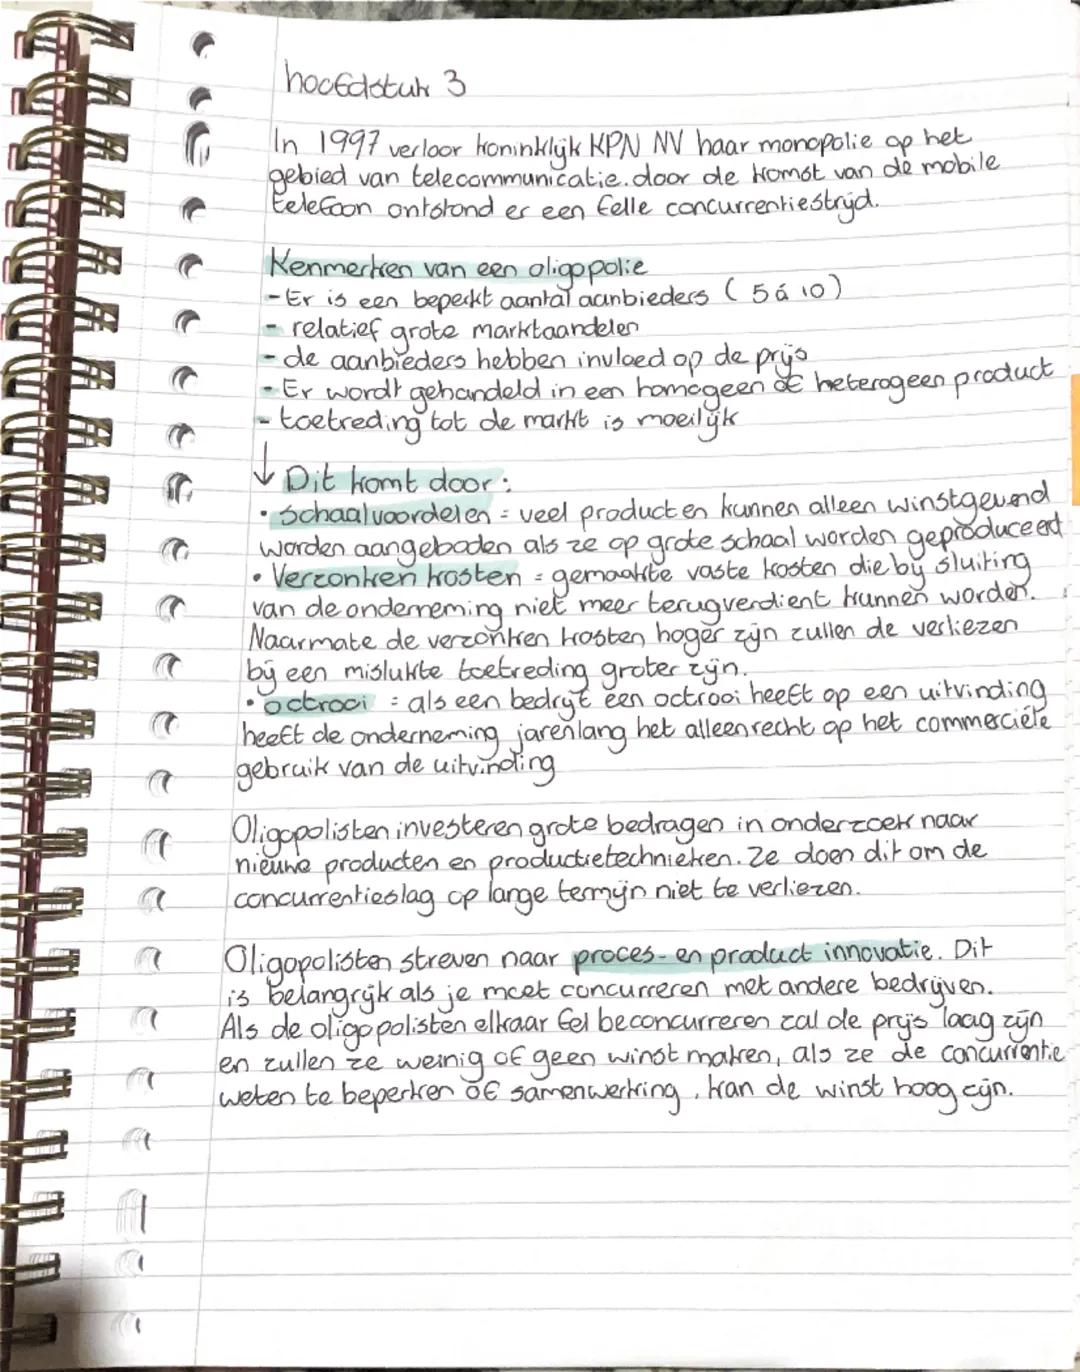 hoofdstuk 3
In 1997 verloor koninklijk KPN NV haar monopolie op het
gebied van telecommunicatie. door de komst van de mobile
telefoon ontstond er een felle concurrentiestrijd.
Kenmerken van een oligopolie
- Er is een beperkt aantal aanbieders ( 5 á 10 )
- relatief grote marktaandelen
- de aanbieders hebben invloed op de prijs
- Er wordt gehandeld in een homogeen of heterogeen product
- toetreding tot de markt is moeilijk
↓ Dit komt door :
• schaalvoordelen = veel producten kunnen alleen winstgevend
worden aangeboden als ze op grote schaal worden geproduceerd
• Verzonken kosten = gemaakte vaste kosten die bij sluiting
van de onderneming niet meer terugverdient kunnen worden.
Naarmate de verzonken kosten hoger zijn zullen de verliezen
bij een mislukte toetreding groter zijn.
• octrooi = als een bedrijf een octrooi heeft op een uitvinding
heeft de onderneming jarenlang het alleenrecht op het commerciële
gebruik van de uitvinding
Oligopolisten investeren grote bedragen in onderzoek naar
nieuwe producten en productietechnieken. Ze doen dit om de
concurrentieslag op lange termijn niet te verliezen.
Oligopolisten streven naar proces- en product innovatie. Dit
is belangrijk als je moet concurreren met andere bedrijven.
Als de oligopolisten elkaar fel beconcurreren zal de prijs laag zijn
en zullen ze weinig of geen winst maken, als ze de concurrentie
weten te beperken of samenwerking , kan de winst hoog zijn.